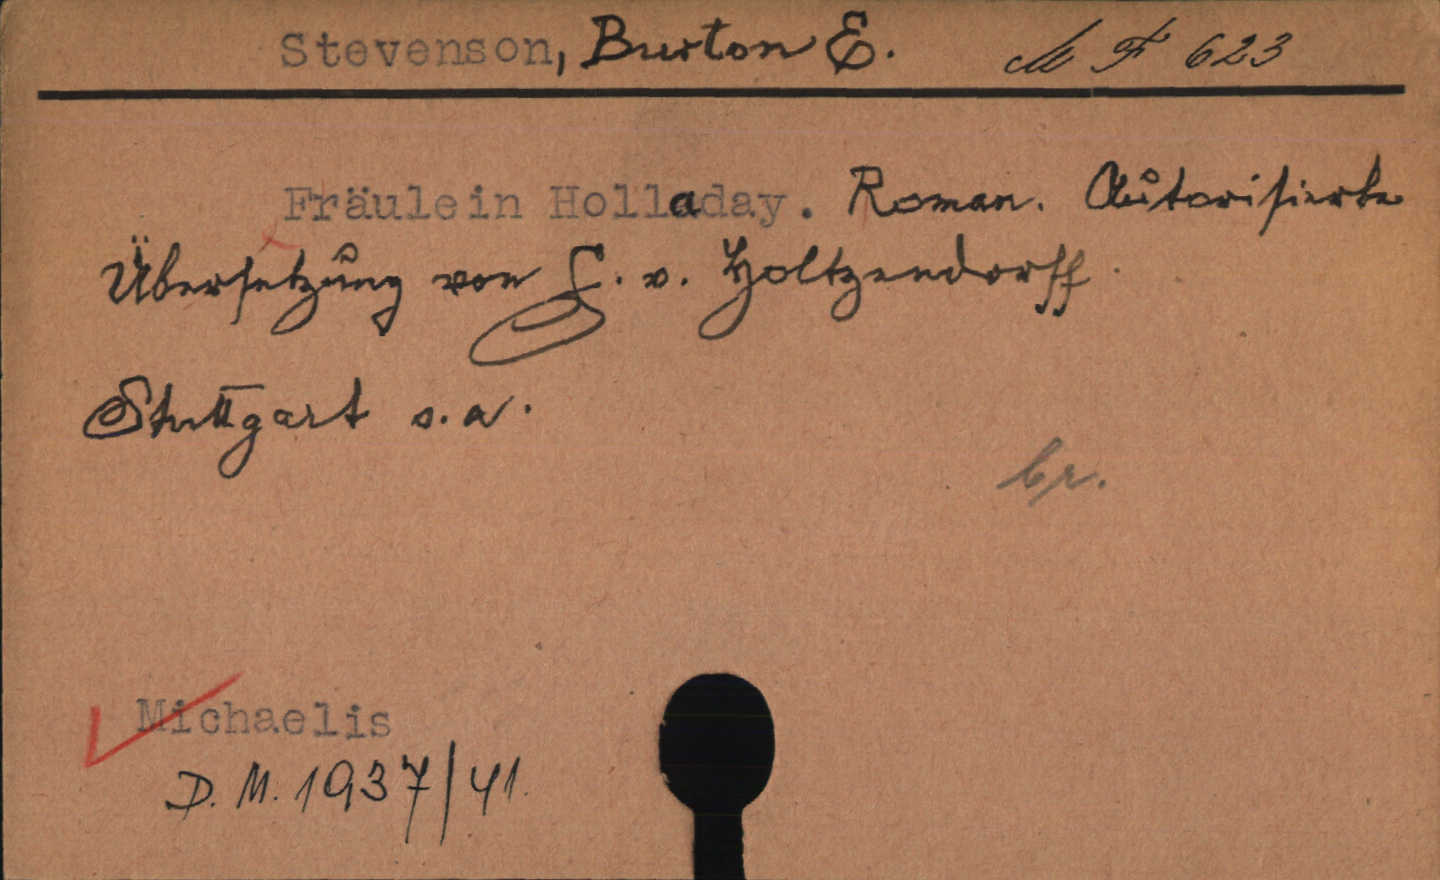 Stevenson, Burton E. M F 623
Fräulein Holladay. Roman. Autorisierte
Übersetzung von L. v. Holtzendorff.
Stuttgart o. a.
br.
Michaelis
D. M. 1937/41.